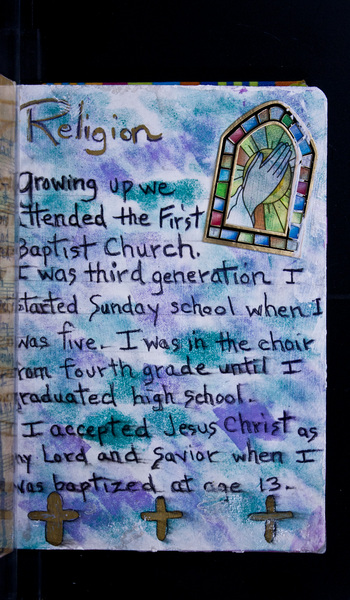 Religion
Growing up we
attended the First
Baptist Church.
I was third generation I
started Sunday school when I
was five. I was in the choir
from fourth grade until I
graduated high school.
I accepted Jesus Christ as
my Lord and Savior when I
was baptized at age 13.